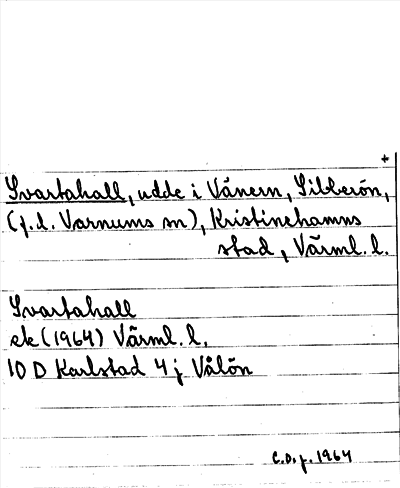 +
Svartahall, udde i Vänern, Sibberön,
(f.d. Varnums sn), Kristinehamns
stad, Värml. l.
Svartahall
ek (1964) Värml. l.
10 D Karlstad 4 j Vålön
C.D.j. 1964